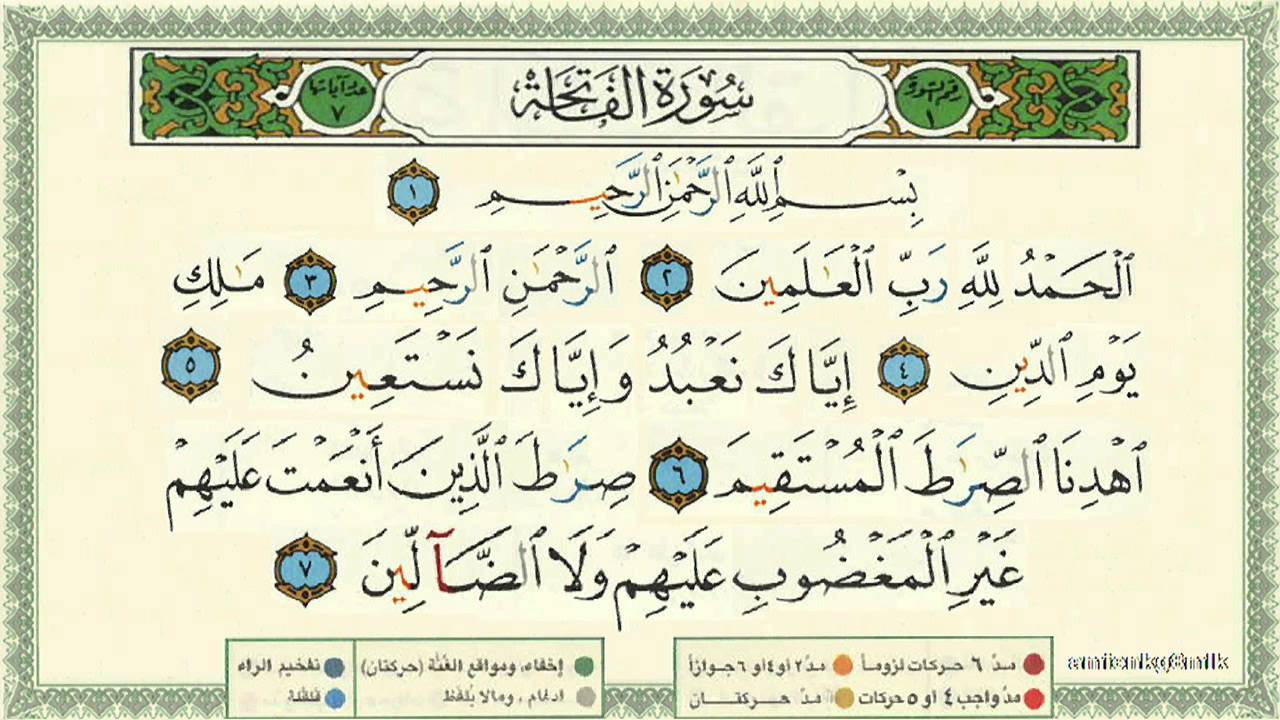 عدد آياتها ٧
سُورَةُ الفَاتِحَة
رقم السورة ١
بِسْمِ ٱللَّهِ ٱلرَّحْمَٰنِ ٱلرَّحِيمِ ١
ٱلْحَمْدُ لِلَّهِ رَبِّ ٱلْعَٰلَمِينَ ٢ ٱلرَّحْمَٰنِ ٱلرَّحِيمِ ٣ مَٰلِكِ
يَوْمِ ٱلدِّينِ ٤ إِيَّاكَ نَعْبُدُ وَإِيَّاكَ نَسْتَعِينُ ٥
ٱهْدِنَا ٱلصِّرَٰطَ ٱلْمُسْتَقِيمَ ٦ صِرَٰطَ ٱلَّذِينَ أَنْعَمْتَ عَلَيْهِمْ
غَيْرِ ٱلْمَغْضُوبِ عَلَيْهِمْ وَلَا ٱلضَّآلِّينَ ٧
مدّ ٦ حركات لزوماً مدّ ٢ أو ٤ أو ٦ جوازاً
مدّ واجب ٤ أو ٥ حركات مدّ حركتان
إخفاء، ومواقع الغُنَّة (حركتان) تفخيم الراء
ادغام، ومالا يُلفَظ قلقلة